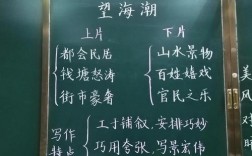 望海潮
上片 下片
都会民居 山水景物
钱塘怒涛 百姓嬉戏
街市豪奢 官民之乐
写作 工于铺叙,安排巧妙
特点 巧用夸张、写景宏伟
美
风